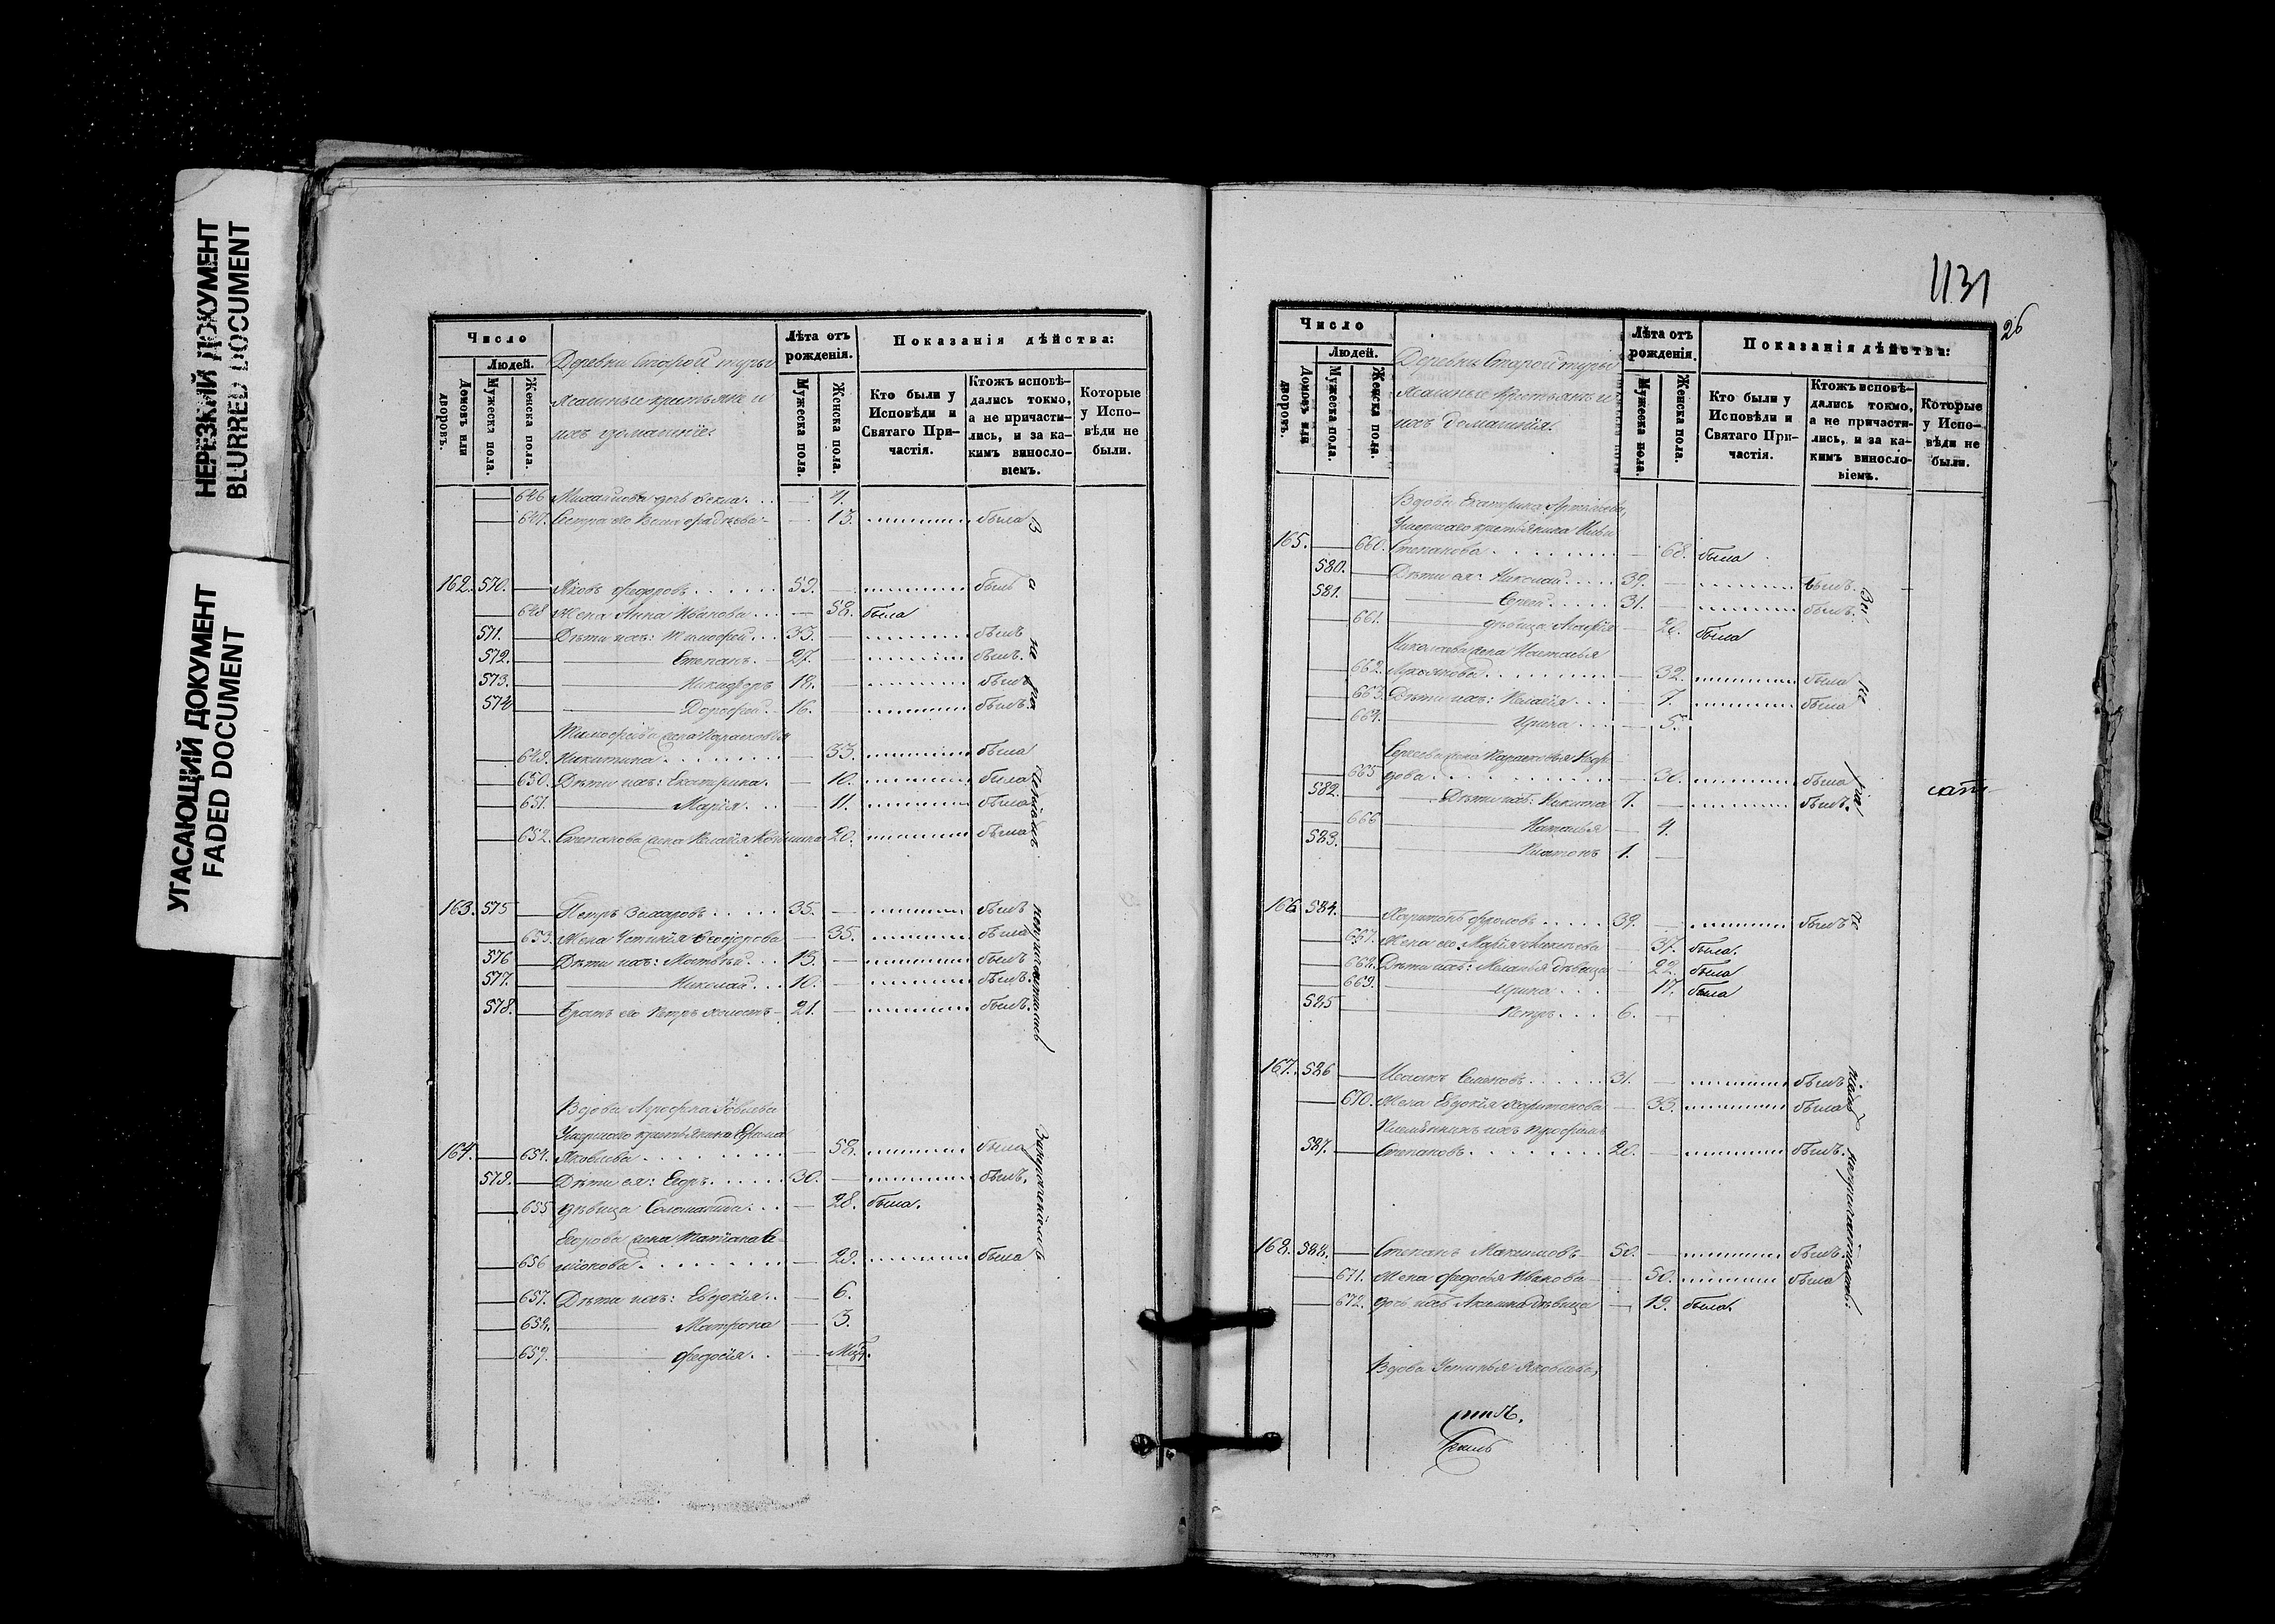 НЕРЕЗКИЙ ДОКУМЕНТ
BLURRED DOCUMENT
УГАСАЮЩИЙ ДОКУМЕНТ
FADED DOCUMENT
Число
Людей.
Домовъ или дворовъ.
Мужеска пола.
Женска пола.
Деревни Старой туры
ясашные крестьяне и
ихъ домашніе.
Лѣта отъ рожденія.
Мужеска пола.
Женска пола.
Показанія дѣйства:
Кто были у Исповѣди и Святаго Причастія.
Ктожъ исповѣдались токмо, а не причастились, и за какимъ винословіемъ.
Которые у Исповѣди не были.
646 Михайлова дочь Фекла. 4.
647. Сестра его 13. была
162. 570. Яковъ Федоровъ 59. былъ
648 Жена Анна Иванова 58. была
571. Дѣти ихъ: Тимофей 33. былъ
572. Степанъ 27. былъ.
573. Никифоръ 18. былъ
574 Дорофей 16. былъ.
Тимофеева жена Парасковья
649. Никитина 33. была
650. Дѣти ихъ: Екатерина. 10. была
651. Марія 11. была
652. Степанова жена Пелагія 20. была
163. 575 Петръ Захаровъ 35. былъ
653. Жена Устинія Феодорова 35. была
576 Дѣти ихъ: Матвѣй 13. былъ
577. Николай 10. былъ.
578. Братъ его Петръ холостъ 21. былъ.
Вдова Агрофена Іовлева
Умершаго крестьянина Ефима
164. 654. Яковлева 58. была
579. Дѣти ея: Егоръ 30. былъ.
655 дѣвица Соломонида 28. была.
Егорова жена Татіана Се-
656 міонова 29. была
657. Дѣти ихъ: Евдокія 6.
658. Матрона 3.
659. Федосія
За
не
ра
дѣніемъ
непричастились
Занерадѣніемъ
1131
26
Число
Людей.
Домовъ или дворовъ.
Мужеска пола.
Женска пола.
Деревни Старой туры
ясашные крестьяне и
ихъ домашнія.
Лѣта отъ рожденія.
Мужеска пола.
Женска пола.
Показанія дѣйства:
Кто были у Исповѣди и Святаго Причастія.
Ктожъ исповѣдались токмо, а не причастились, и за какимъ винословіемъ.
Которые у Исповѣди не были.
Вдова Екатерина
Умершаго крестьянина
165. 660. Степанова 68. была
580. Дѣти ея: Николай 39. былъ.
581. Сергей 31. былъ.
661. дѣвица Агафія 26. была
Николаева жена Настасья
662. 32. была
663. Дѣти ихъ: Пелагія 7. была
664. Ирина 5.
Сергеева жена Парасковья
665 30. была
582. Дѣти ихъ: Никита 7. былъ.
666 Наталья 4.
583. Платонъ 1.
166. 584. Харитонъ Фроловъ 39. былъ
667. Жена его Марія 37. была.
668. Дѣти ихъ: Меланья дѣвица 22. была
669. Ирина 17. была
585 Петръ 6.
167. 586 31. былъ
670. Жена Евдокія Харитонова 33. была
Племянникъ ихъ Трофимъ
587. Степановъ 20. былъ.
168. 588. Степанъ Максимовъ 50. былъ.
671. Жена Федосья Иванова 50. была
672. дочь ихъ Акилина дѣвица 19. была.
Вдова Устинья Яковлева,
За
не
ра
дѣ
ніемъ
непричастились.